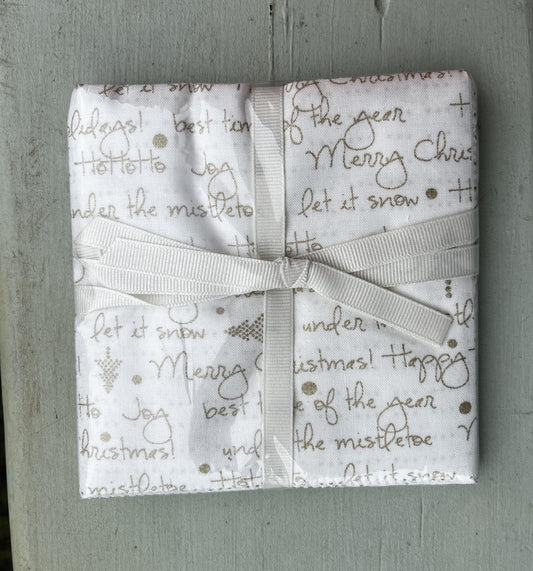 let it snow Christmas!
lidays! best tim of the year
HoHoHo Joy Merry Chris
nder the mistletoe let it snow H
HoHoHo
let it snow under
Merry C istmas! Happy
o Joy best t e of the year
hristmas! und the mistletoe
mistletoe HoHoHo let it snow